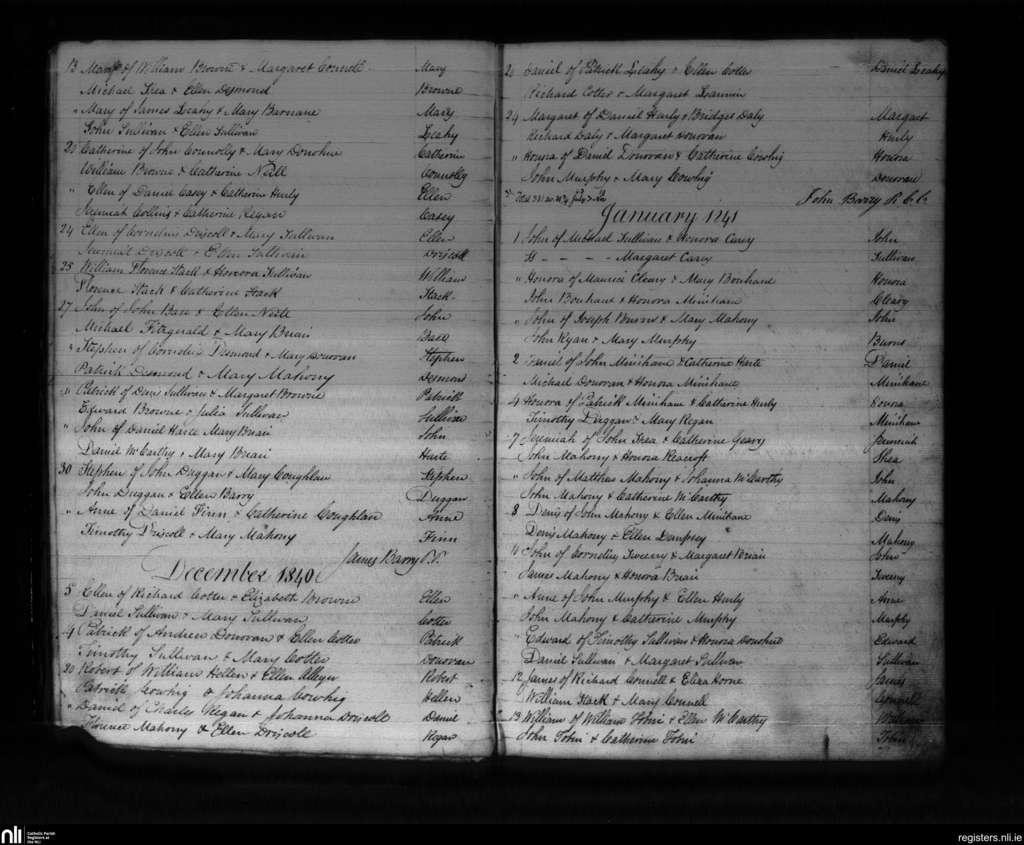 13 Mary of William Browne & Margaret Connell Mary
Michael Shea & Ellen Desmond Browne
" Mary of James Leahy & Mary Barnane Mary
John Sullivan & Ellen Sullivan Leahy
20 Catherine of John Connolly & Mary Donohue Catherin
William Browne & Catherine Connolly
" Ellen of Daniel Casey & Catherin Hurly Ellen
Jeremiah Collins & Catherine Regan Casey
24 Ellen of Cornelius Driscoll & Mary Sullivan Ellen
Jeremiah Driscoll & Ellen Sullivan Driscoll
25 William Florence Stack & Honora Sullivan William
Florence Stack & Catherine Stack Stack
27 John of John Base & Ellen John
Michael Fitzgerald & Mary Briar Base
" Stephen of Cornelis Desmond & Mary Donovan Stephen
Patrick Desmond & Mary Mahony Desmond
" Patrick of Dan Sullivan & Margaret Browne Patrick
Edward Browne & Julia Sullivan Sullivan
" John of Daniel Mary Briar John
Daniel McCarthy & Mary Briar
30 Stephen of John Duggan & Mary Coughlan Stephen
John Duggan & Ellen Barry Duggan
" Anne of Daniel Finn & Catherine Coughlan Anne
Timothy Driscoll & Mary Mahony Finn
James Barry P.P.
December 1840
5 Ellen of Richard Cotter & Elizabeth Browne Ellen
Daniel Sullivan & Mary Sullivan Cotter
Patrick of Andrew Donovan & Ellen Cotter Patrick
Timothy Sullivan & Mary Cotter Donovan
20 Robert of William Hellen & Ellen Robert
Patrick Cowhig & Johanna Cowhig Hellen
" Daniel of Charles Regan & Johanna Driscoll Daniel
Florence Mahony & Ellen Driscoll Regan
Daniel of Patrick Leahy & Ellen Cotter Daniel Leahy
Richard Cotter & Margaret
24 Margaret of Daniel Hurly & Bridget Daly Margaret
Richard Daly & Margaret Donovan Hurly
" Honora of Daniel Donovan & Catherine Cowhig Honora
John Murphy & Mary Cowhig Donovan
John Barry R.C.C.
January 1841
1 John of Michael Sullivan & Honora Carey John
- - - - Margaret Carey Sullivan
" Honora of Maurice Cleary & Mary Bonhard Honora
John Bonhard & Honora Minihane Cleary
" John of Joseph Burns & Mary Mahony John
John Ryan & Mary Murphy Burns
2 Daniel of John Minihane & Catherine Daniel
Michael Donovan & Honora Minihane Minihane
4 Honora of Patrick Minihane & Catherine Hurly Honora
Timothy Duggan & Mary Regan Minihane
7 Jeremiah of John Shea & Catherine Geary Jeremiah
John Mahony & Honora Shea
" John of Matthew Mahony & Johanna McCarthy John
John Mahony & Catherine McCarthy Mahony
8 Denis of John Mahony & Ellen Minihane Denis
Denis Mahony & Ellen Dempsey Mahony
11 John of Cornelius Tweeny & Margaret Briar John
James Mahony & Honora Briar Tweeny
" Anne of John Murphy & Ellen Hurly Anne
John Mahony & Catherine Murphy Murphy
" Edward of Timothy Sullivan & Honora Donohue Edward
Daniel Sullivan & Margaret Sullivan Sullivan
12 James of Richard Connell & Eliza Horne James
William Stack & Mary Connell Connell
13 William of William Tobin & Ellen McCarthy William
John Tobin & Catherine Tobin Tobin
nli Catholic Parish
Registers at
the NLI
registers.nli.ie